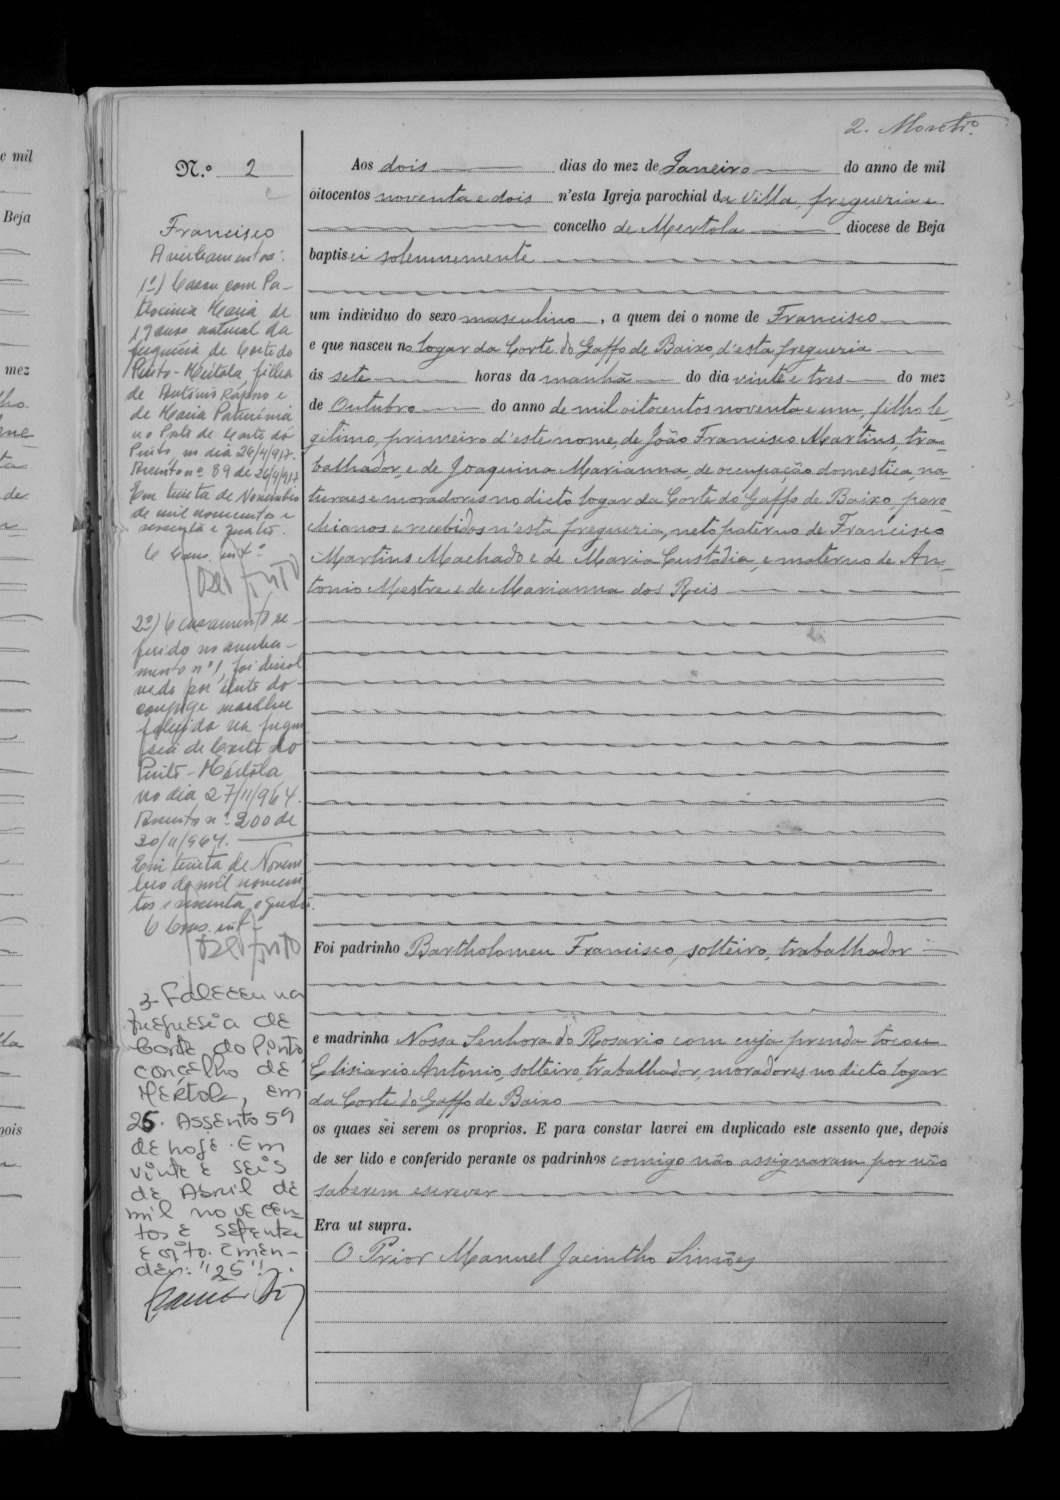 e mil
Beja
mez
de
pois
2. Monteiro
N.º 2
Francisco
Averbamentos:
1º) Casou com Pa-
trocinia Maria de
19 anos natural da
freguesia de Corte do
Pinto-Mértola, filha
de António Raposo e
de Maria Patricinia
no Posto de Corte do
Pinto, no dia 26/4/917.
Assento nº 89 de 26/4/917
Em trinta de Novembro
de mil novecentos e
sessenta e quatro.
O Cons. intº
2º) O casamento re-
ferido no averba-
mento nº 1, foi dissol
vido por óbito do
conjuge mulher
falecida na fregue
sia de Corte do
Pinto-Mértola
no dia 27/11/964.
Assento nº 200 de
30/11/964.
Em trinta de Novem
bro de mil novecen
tos e sessenta e quatro.
O Cons. intº
3- Faleceu na
freguesia de
Corte do Pinto,
concelho de
Mértola, em
25. Assento 59
de hoje. Em
vinte e seis
de Abril de
mil novecen
tos e setenta
e oito. Emen-
dei: "25".
Aos dois dias do mez de Janeiro do anno de mil
oitocentos noventa e dois n'esta Igreja parochial da villa, freguezia e
concelho de Mertola diocese de Beja
baptisei solemnemente
um individuo do sexo masculino, a quem dei o nome de Francisco
e que nasceu no logar da Corte do Gaffo de Baixo, d'esta freguezia
ás sete horas da manhã do dia vinte e tres do mez
de Outubro do anno de mil oitocentos noventa e um, filho le-
gitimo, primeiro d'este nome, de João Francisco Martins, tra-
balhador, e de Joaquina Marianna, de occupação domestica, na-
turaes e moradores no dicto logar da Corte do Gaffo de Baixo, paro
chianos e recebidos n'esta freguezia, neto paterno de Francisco
Martins Machado e de Maria Custodia, e materno de An-
tonio Mestre e de Marianna dos Reis
Foi padrinho Bartholomeu Francisco, solteiro, trabalhador
e madrinha Nossa Senhora do Rosario com cuja prenda tocou
Elisiario Antonio, solteiro, trabalhador, moradores no dicto logar
da Corte do Gaffo de Baixo
os quaes sei serem os proprios. E para constar lavrei em duplicado este assento que, depois
de ser lido e conferido perante os padrinhos comigo não assignaram por não
saberem escrever
Era ut supra.
O Prior Manuel Jacintho Simões